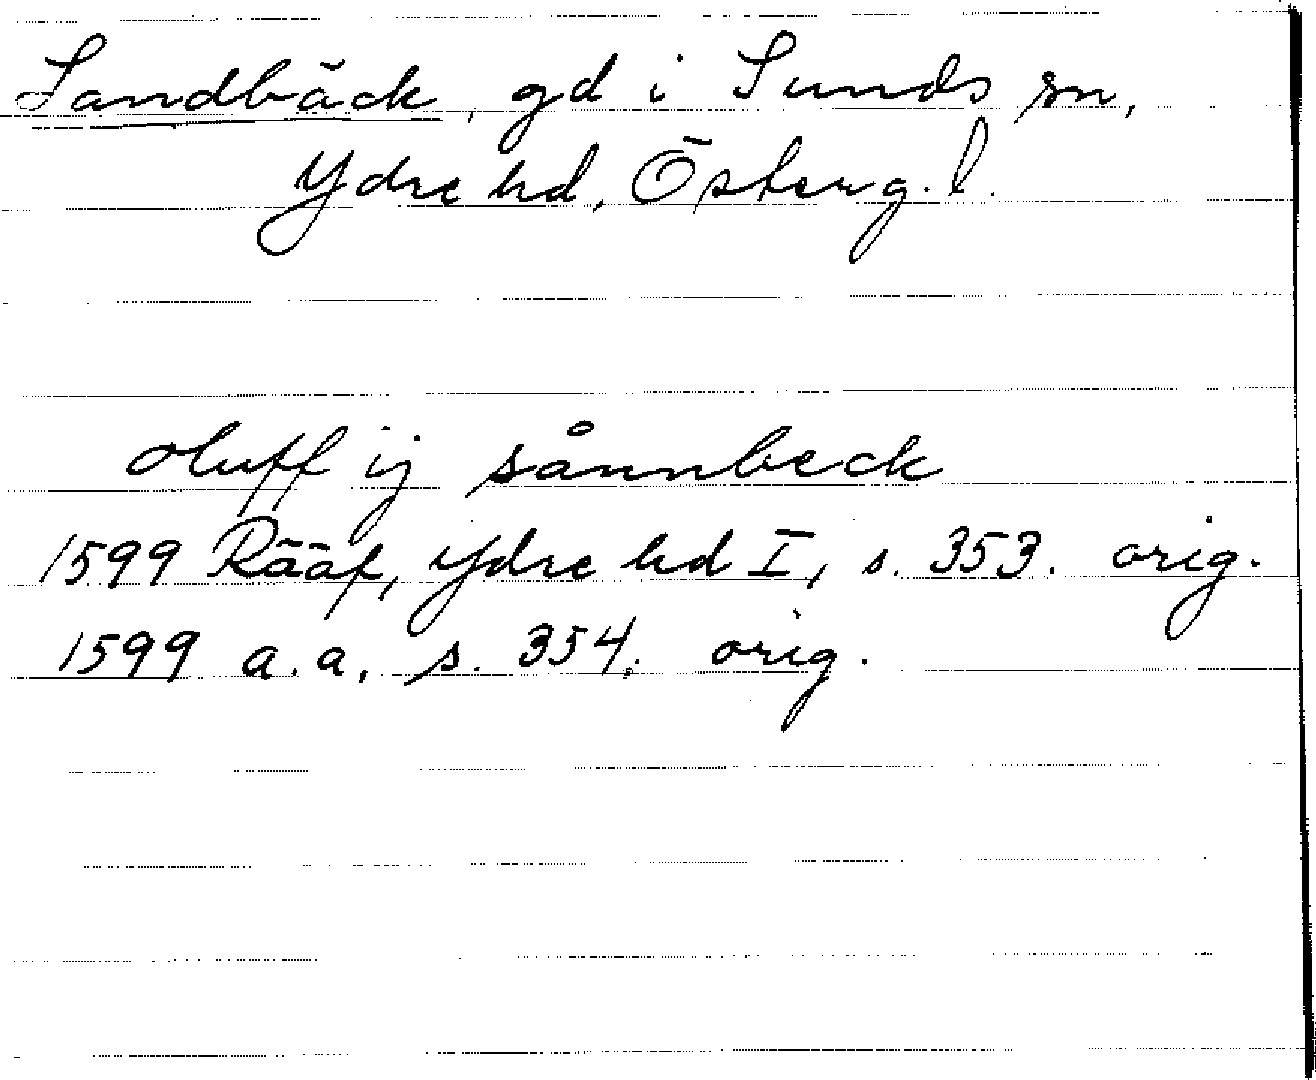 Sandbäck, gd i Sunds sn,
Ydre hd, Österg. l.
oluff ij sånnbeck
1599 Rääf, Ydre hd I, s. 353. orig.
1599 a.a. s. 354. orig.